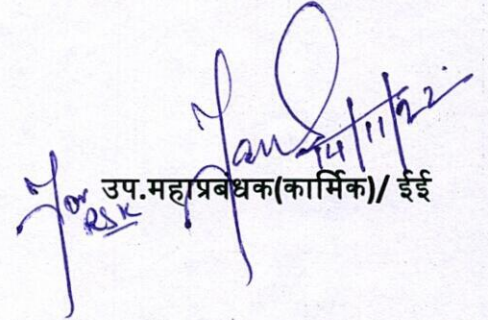 14/11/22
For
RSK
उप.महाप्रबंधक(कार्मिक)/ ईई